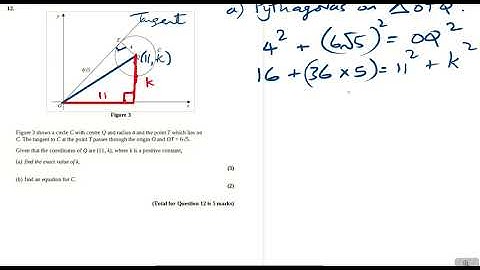 12.
Tangent
a) Pythagoras on △OTQ.
4² + (6√5)² = OQ²
16 + (36 × 5) = 11² + k²
(11, k)
k
11
6√5
Figure 3
Figure 3 shows a circle C with centre Q and radius 4 and the point T which lies on
C. The tangent to C at the point T passes through the origin O and OT = 6√5.
Given that the coordinates of Q are (11, k), where k is a positive constant,
(a) find the exact value of k,
(3)
(b) find an equation for C.
(2)
(Total for Question 12 is 5 marks)